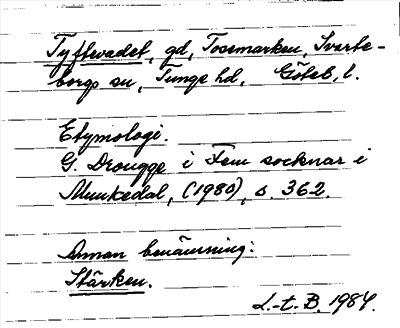 Tyftevadet, gd, Tosemarken, Svarte-
borgs sn, Tunge hd, Göteb, l.
Etymologi.
G. Drougge i Fem socknar i
Munkedal, (1980), s. 362.
Annan benämning:
Stärken.
L.-t. B. 1984.